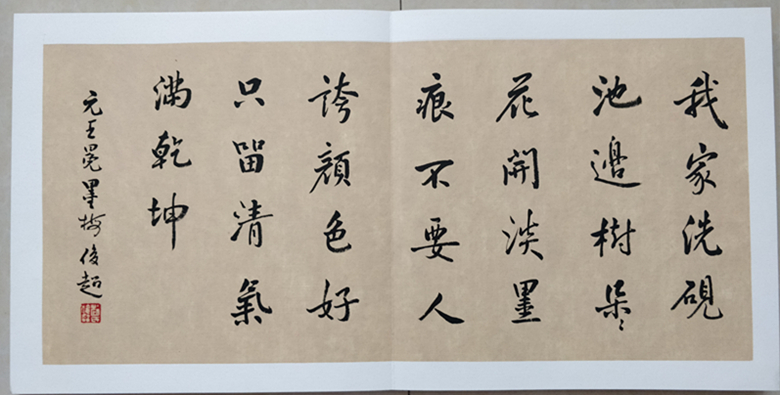 我家洗硯
池邊樹朵〻
花開淡墨
痕不要人
誇顏色好
只留清氣
滿乾坤
元王冕墨梅俊超